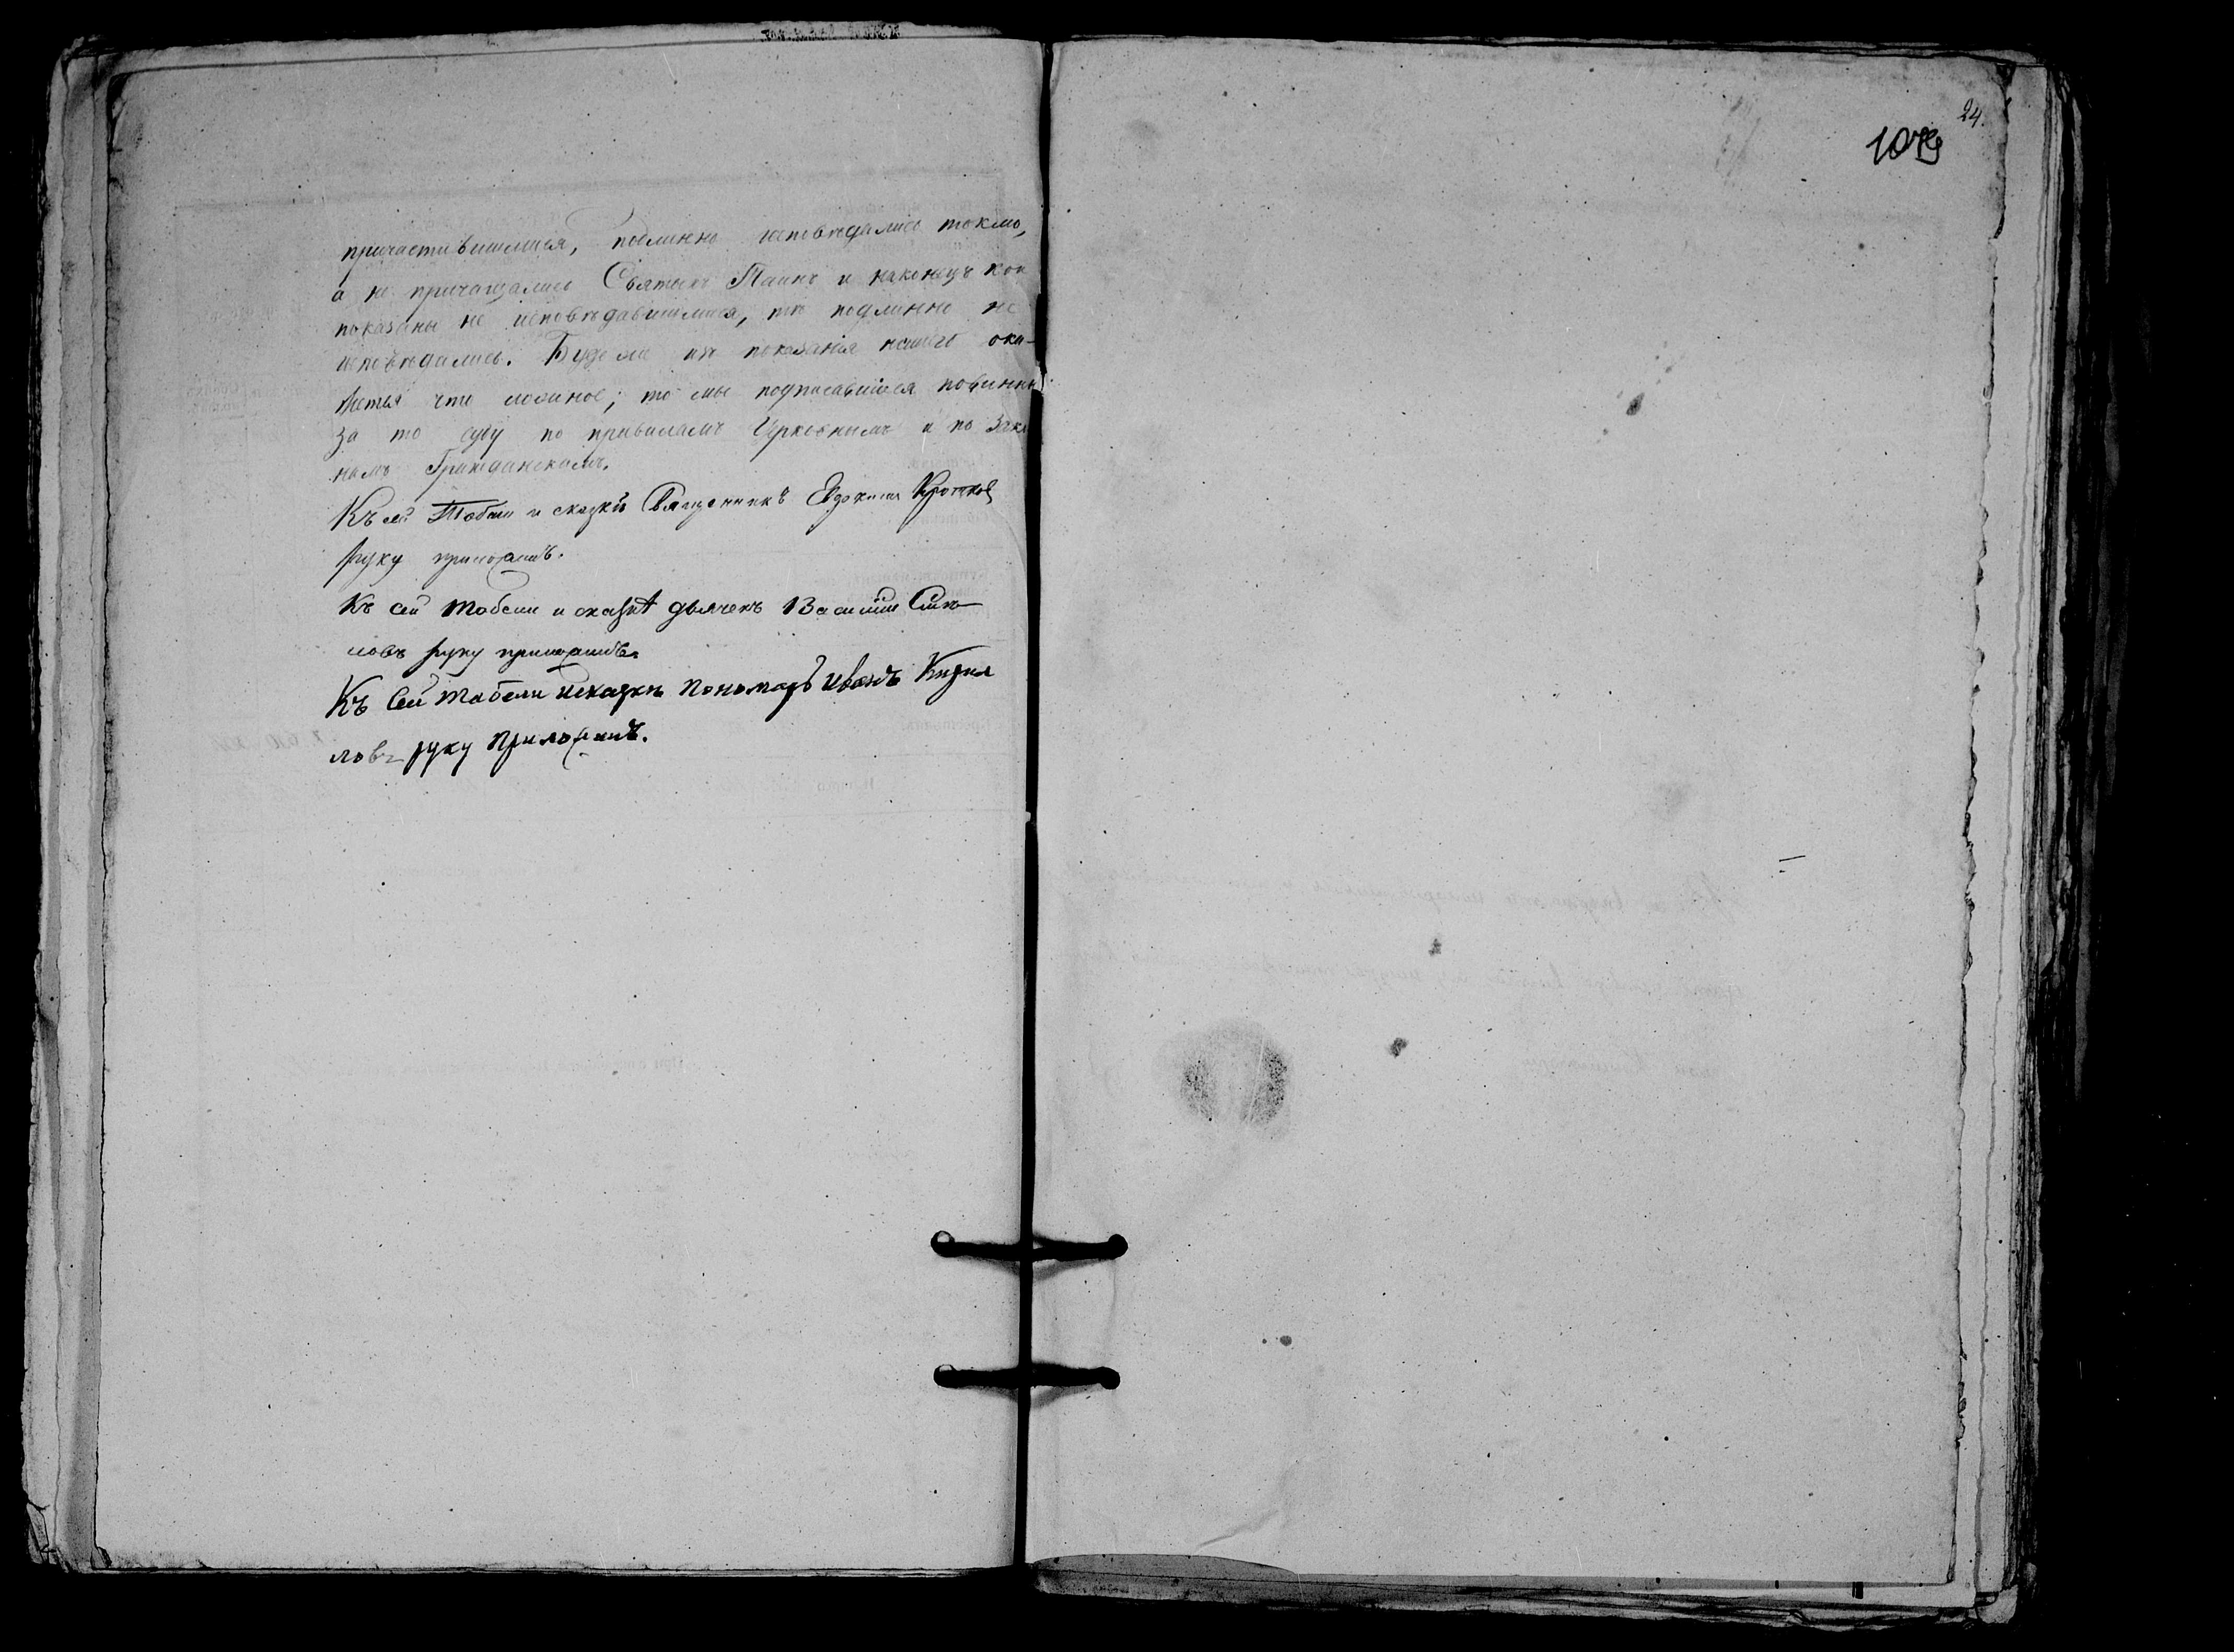 причастившимися, подлинно исповѣдались токмо,
а не причащались Святыхъ Таинъ и наконецъ кои
показаны не исповѣдавшимися, тѣ подлинно не
исповѣдались. Буде же изъ показанія нашего ока-
жется что ложное; то мы подписавшіеся повинны
за то суду по правиламъ Церковнымъ и по зако
намъ Гражданскимъ.
Къ сей Табели и сказки Священникъ Евдокимъ Кротковъ
руку приложилъ.
Къ сей табели и сказкѣ дьячекъ Василий
новъ руку приложилъ.
Къ Сей табели и сказки пономарь Иванъ Кирил
ловъ руку приложилъ.
24.